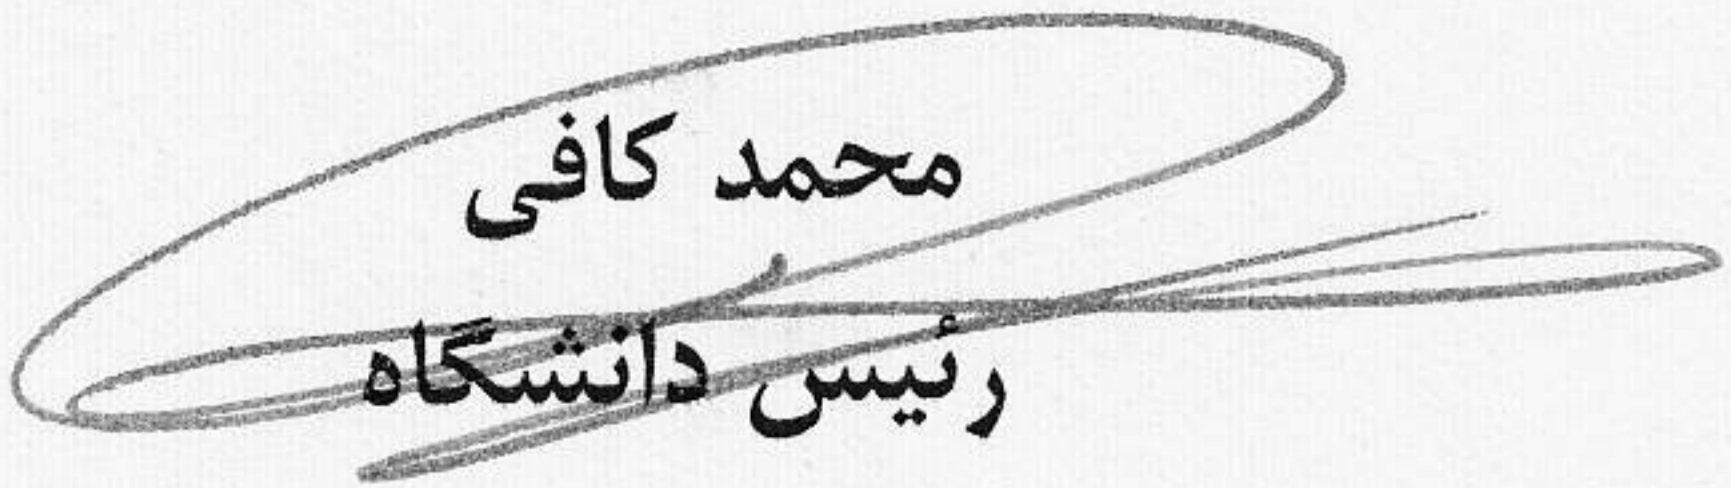 محمد کافی
رئیس دانشگاه